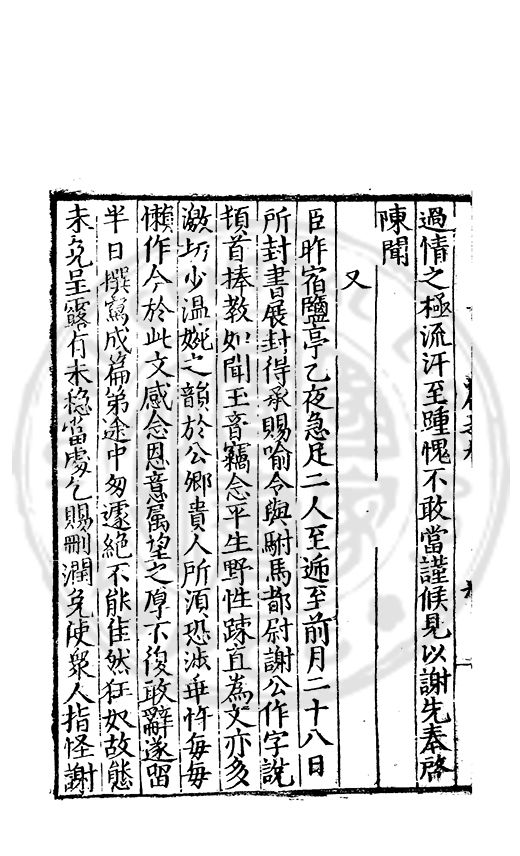 過情之極流汗至踵愧不敢當謹候見以謝先奉啓
陳聞
又
臣昨宿鹽亭乙夜急足二人至遞至前月二十八日
所封書展封得承賜喻令與駙馬都尉謝公作字說
頓首捧教如聞玉音竊念平生野性踈直為文亦多
激切少溫婉之韻於公卿貴人所須恐涉乖忤每每
懶作今於此文感念恩意属望之厚不復敢辭遂留
半日撰寫成篇第途中匆遽絕不能佳然狂奴故態
未免呈露有未稳當處乞賜刪潤免使衆人指怪謝